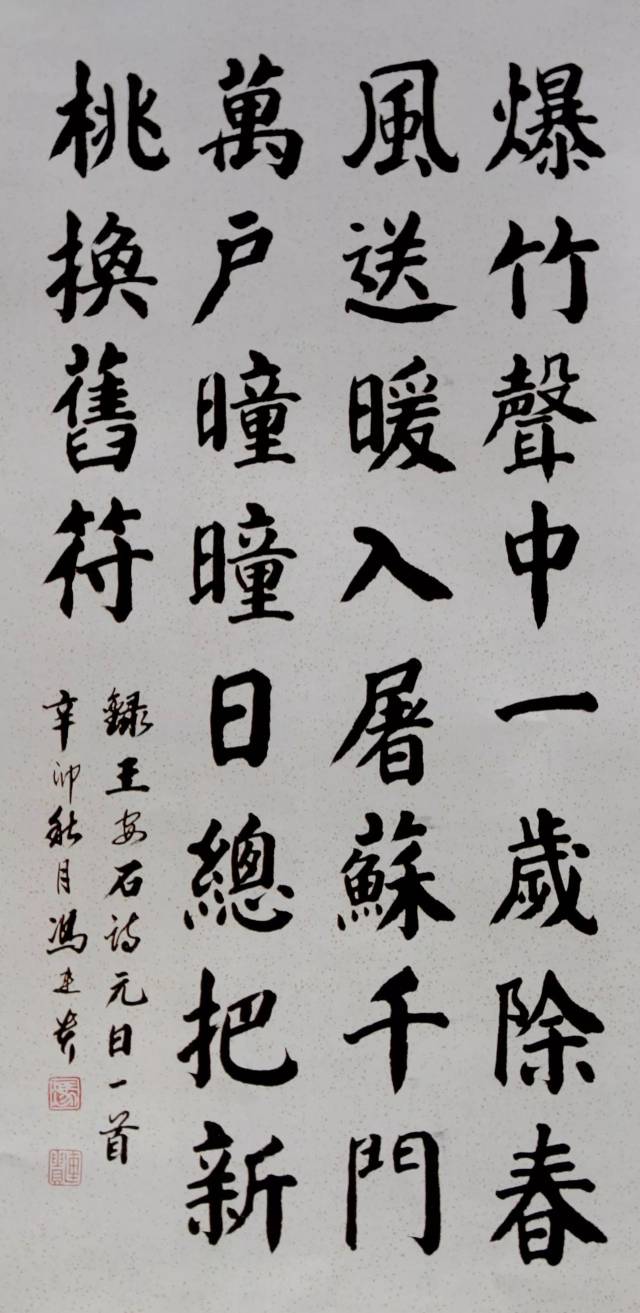 爆竹聲中一歲除春
風送暖入屠蘇千門
萬户曈曈日總把新
桃換舊符
錄王安石詩元日一首
辛卯秋月馮建贵
馮
建貴